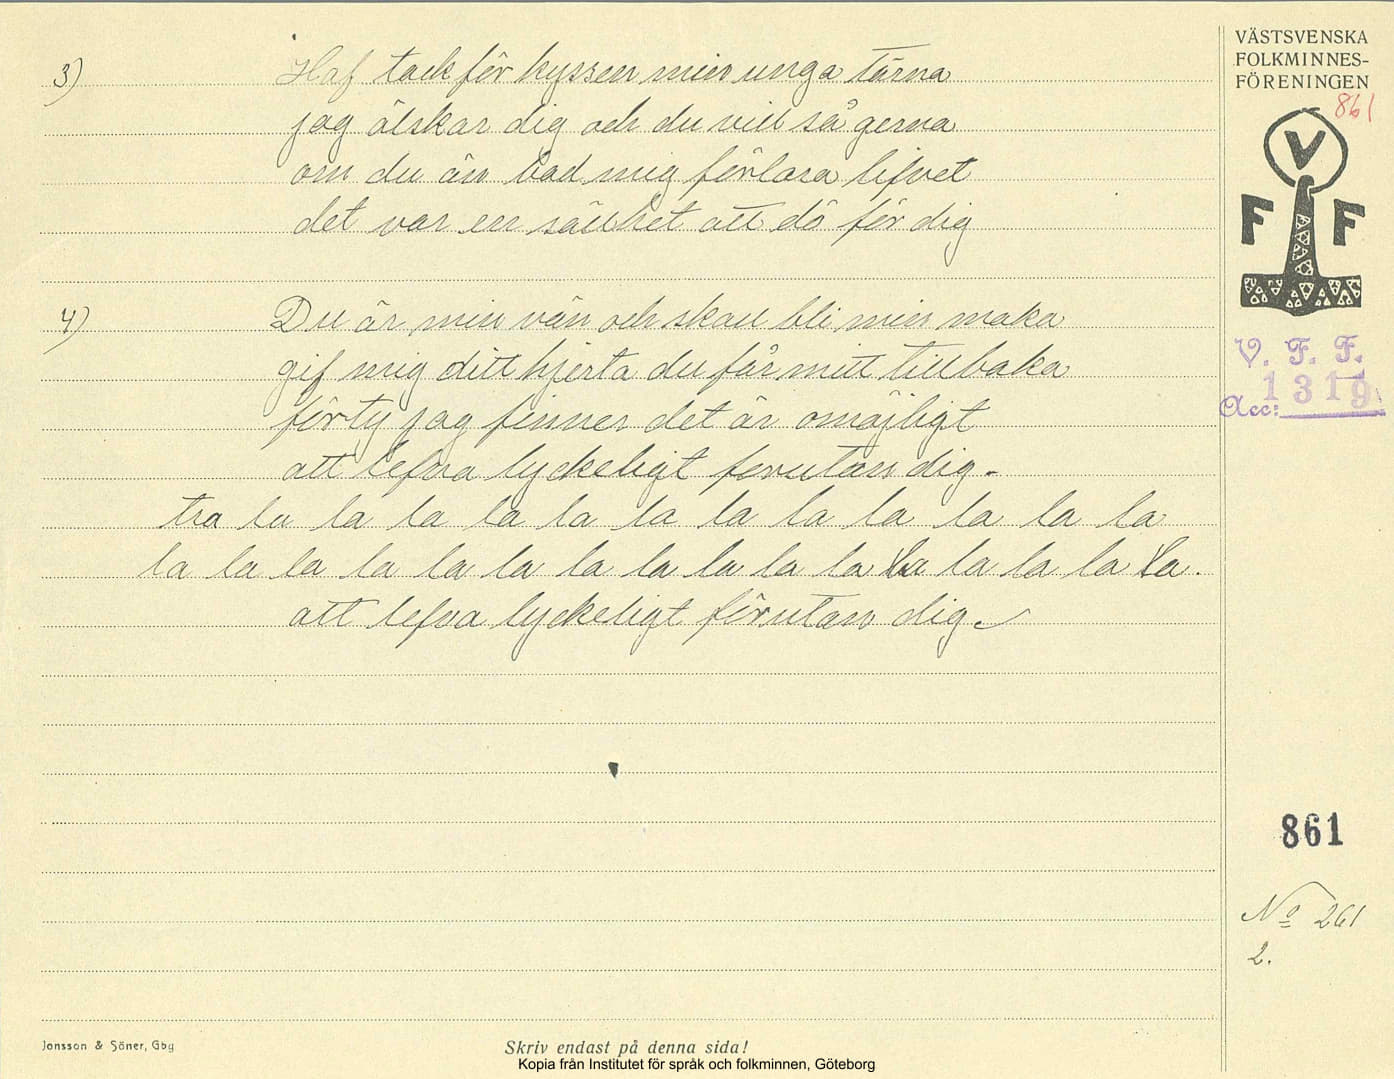 VÄSTSVENSKA
FOLKMINNES-
FÖRENINGEN
861
V
F F
V. F. F.
Acc: 1319
3) Haf tack för kyssen min unga tärna
jag älskar dig och du vill så gerna
om du än bad mig förlora lifvet
det var en sällhet att dö för dig
4) Du är min vän och skall bli min maka
gif mig ditt hjerta du får mitt tillbaka
förty jag finner det är omöjligt
att lefva lyckeligt forutan dig.
tra la la la la la la la la la la la la
la la la la la la la la la la la la la la la la.
att lefva lyckeligt förutan dig.
861
No 261
2.
Jonsson & Söner, Gbg
Skriv endast på denna sida!
Kopia från Institutet för språk och folkminnen, Göteborg